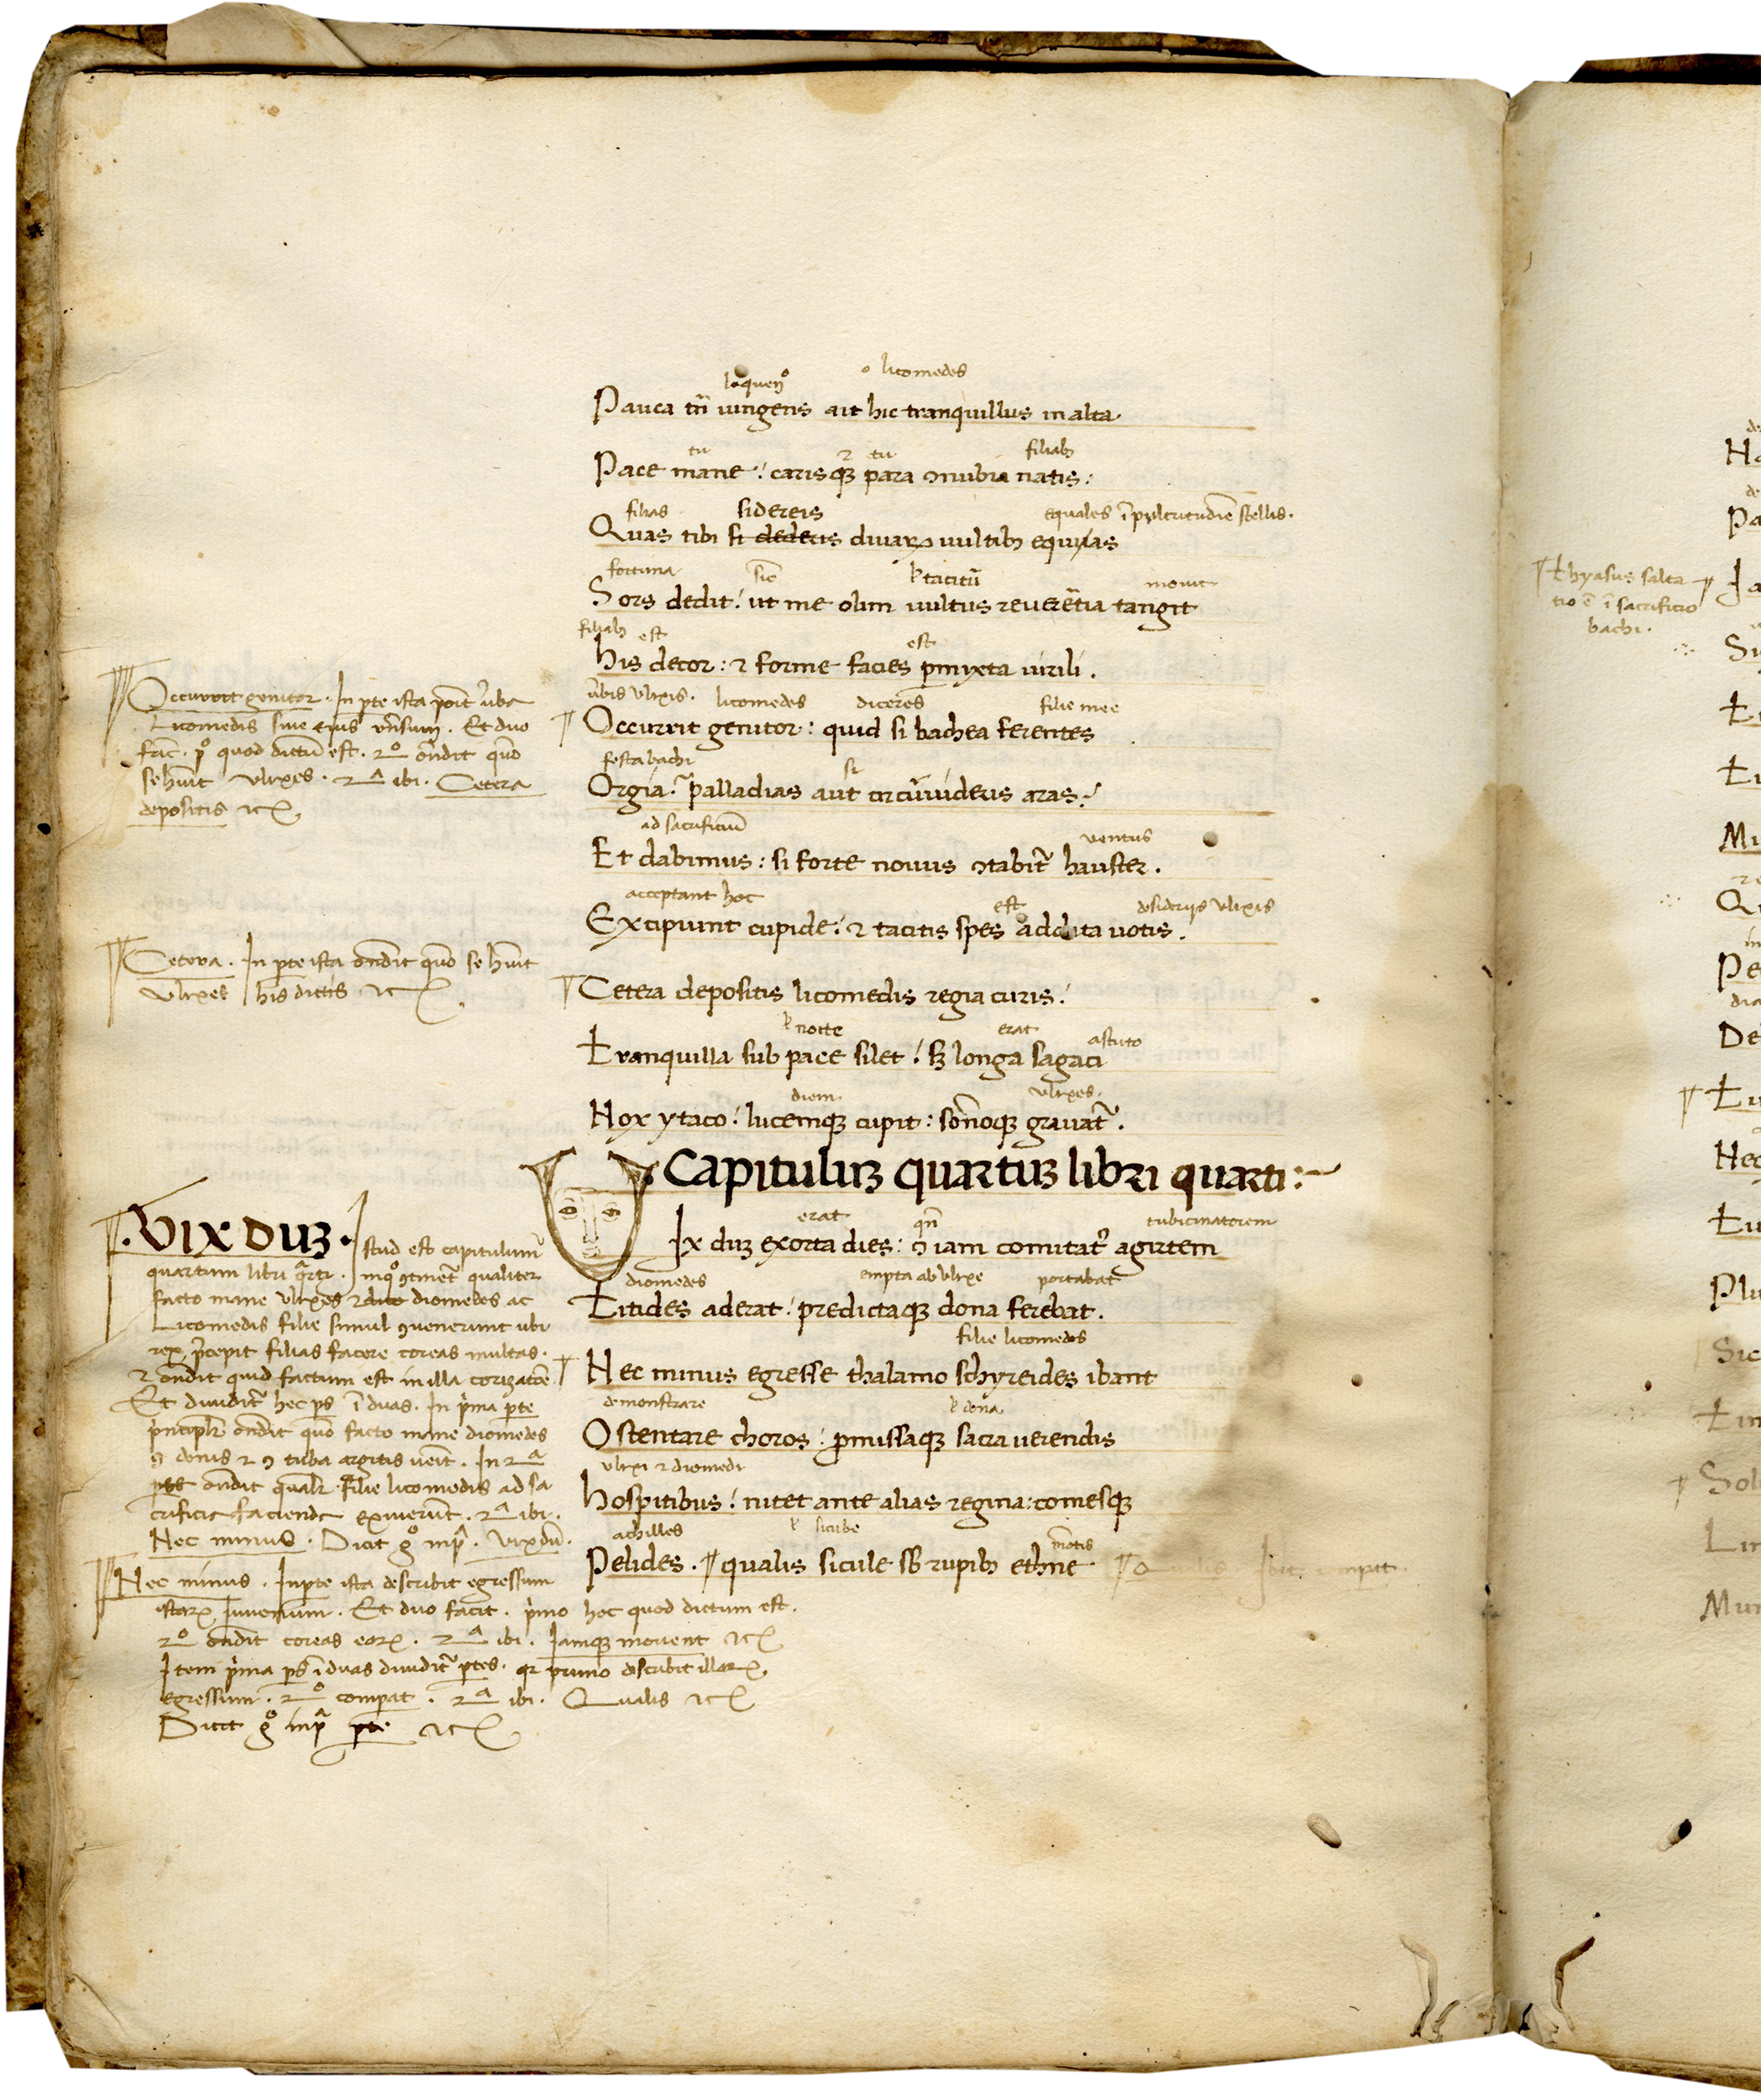 loquenꝰ o licomedes
Pauca tn̄ iungens ait hic tranquillus in alta.
tu ⁊ tu filiabꝫ
Pace mane: carisqꝫ para ꝯnubia natis:
filias sidereis equales ī pulcritudīe stellis.
Quas tibi si dederis diuarꝝ uultibꝫ equas
fortuna sic tacitū mouit
Sors dedit: ut me olim uultus reuerētia tangit
filiabꝫ est est
his decor: ⁊ forme facies ꝑmixta uirili.
ūbis vlixis. licomedes diceres filie mee
Occurrit genitor: quid si bachea ferentes
festa bachi si
Orgia: palladias aut circūuideris aras:
ad sacrificiū uentus
Et dabimus: si forte nouus ꝯtabit̄ hauster.
acceptant hoc est desiderijs vlixis
Excipiunt cupide: ⁊ tacitis spes addita uotis.
Cetera depositis licomedis regia curis:
nocte erat astuto
Tranquilla sub pace silet: sꝫ longa sagaci
diem vlixes.
Nox ytaco: lucemqꝫ cupit: som̄oqꝫ grauat̄.
Capitulū quartū libri quarti:
erat qn̄ tubicinatorem
Vix duꝫ exorta dies: ꝯ iam comitat̄ agirtem
diomedes empta ab vlixe portabat
Titides aderat: predictaqꝫ dona ferebat.
filie licomedis
Nec minus egresse thalamo schyreides ibant
demonstrare dona
Ostentare choros: ꝓmissaqꝫ sacra uerendis
vlixi ⁊ diomedi
hospitibus: nitet ante alias regina: comesqꝫ
achilles montis
Pelides. qualis sicule sb̄ rupibꝫ ethne
Occurrit genitor. In ꝑte ista pōit ūba
Licomedis siue eius rn̄sum. Et duo
fac̄. pº quod dictū est. 2º ōndit quō
se hūit vlixes. 2ª ibi. Cetera
depositis ⁊cꝫ
Cetera. In ꝑte ista ōndit quō se hūit
vlixes his dictis ⁊cꝫ
Vix duꝫ. Istud est capitulum
quartum libri q̄rti. in qº ꝯtinet̄ qualiter
facto mane vlixes ⁊ diomedes ac
Licomedis filie simul ꝯuenerunt ubi
rex p̄cepit filias facere coreas multas.
⁊ ōndit quid factum est in illa corizatōe
Et diuidit̄ hec ps̄ ī duas. In p̄ma ꝑte
p̄ncipalr̄ ōndit quō facto mane diomedes
ꝯ donis ⁊ ꝯ tuba argitis uēit. In 2ª
ōndit qualr̄ filie licomedis ad sa
crificia facienda exiuerūt. 2ª ibi.
Nec minus. Dicit gº inpª. Vix dū.
Nec minus. In ꝑte ista describit egressum
istarꝝ Iuuenum. Et duo facit. p̄mo hoc quod dictum est.
2º ōndit coreas earꝝ. 2ª ibi. Iamqꝫ mouent ⁊cꝫ
Item p̄ma ps̄ ī duas diuidit̄ ꝑtes. qr primo describit illarꝝ
egressum. 2º comparat. 2ª ibi. Qualis ⁊cꝫ
Dicit gº inpª ꝑte ⁊cꝫ
Thyasus salta
tio ē ī sacrificio
bachi.